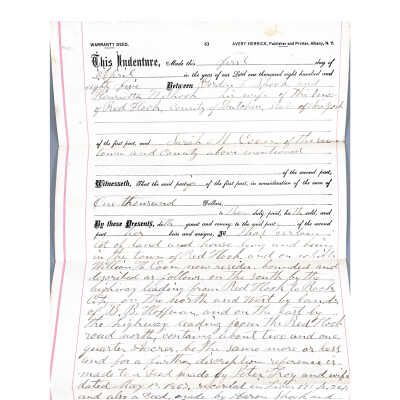 WARRANTY DEED. 63 AVERY HERRICK, Publisher and Printer, Albany, N. Y.
This Indenture, Made this first day of
April in the year of our Lord one thousand eight hundred and
eighty five Between
Henrietta his wife of the town
of Red Hook, County of Dutchess, State of New York
of the first part, and Sarah M. Coon of the same
town and County above mentioned
of the second part,
Witnesseth, That the said parties of the first part, in consideration of the sum of
One thousand Dollars,
to them duly paid, hath sold, and
By these Presents, doth grant and convey, to the said part of the second
part her heirs and assigns, All that certain
lot of land and house lying and being
in the town of Red Hook and on which
William Coon now resides, bounded and
described as follows on the South by the
highway leading from Red Hook to Rock
City, on the North and West by lands
of Hoffman, and on the East by
the highway leading from the Red Hook
road north, containing about two and one
quarter Acres, be the same more or less
and for a further discription reference is
made to a Deed made by Peter Troy and wife
dated May recorded in Liber
and also a Deed, made by Aaron Shook and